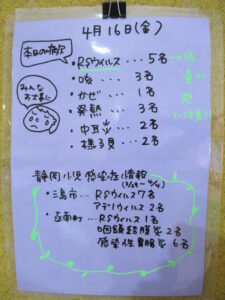 4月16日(金)
本日の病欠
・RSウイルス・・・5名
・咳・・・3名
・かぜ・・・1名
・発熱・・・3名
・中耳炎・・・2名
・様子見・・・2名
みんなお大事に
→咳
熱
に注意!!
静岡小児感染症情報
・三島市・・・RSウイルス7名
アデノウイルス2名
・函南町・・・RSウイルス1名
咽頭結膜炎2名
感染性胃腸炎6名